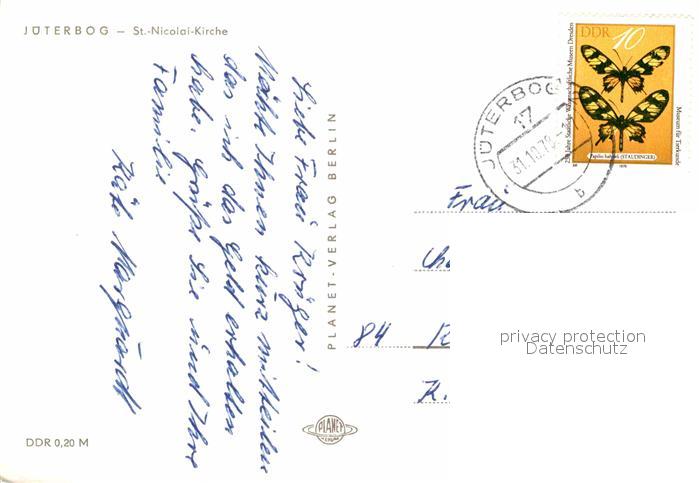 JÜTERBOG – St.-Nicolai-Kirche
Liebe Frau Krüger!
Möchte Ihnen kurz mitteilen
das ich das Geld erhalten
habe. Grüße Sie und Ihre
Familie
Käte
DDR 0,20 M
PLANET-VERLAG BERLIN
PLANET
DDR 10
250 Jahre Staatliche Wissenschaftliche Museen Dresden
Museum für Tierkunde
Papilio hahneli (STAUDINGER)
1978
JÜTERBOG
17
31.10.78
b
Frau
84
K.
privacy protection
Datenschutz